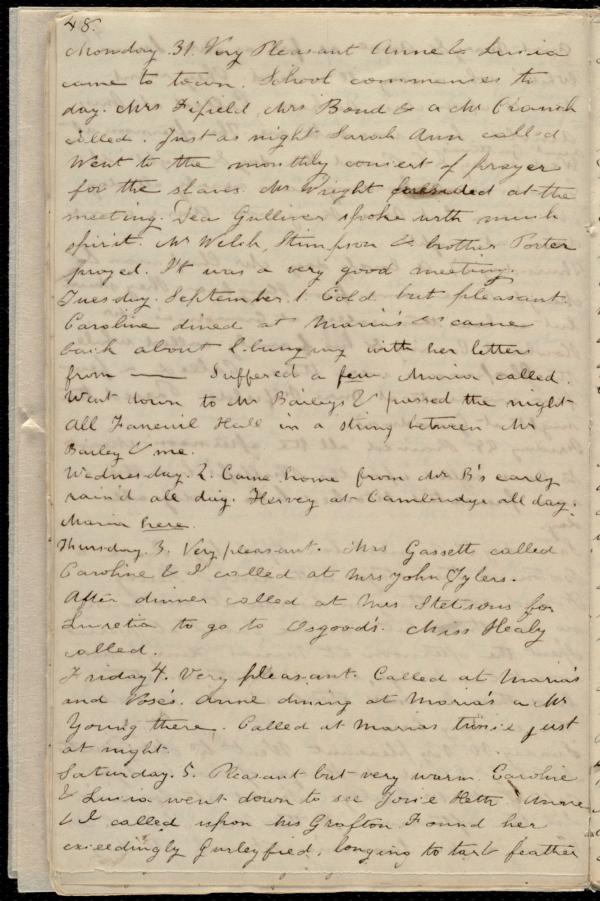 48.
Monday. 31. Very Pleasant Anne & Lucia
came to town. School commences to
day. Mrs Fifield, Mrs Bond & a Mr Cranch
called. Just as night Sarah Ann called
Went to the monthly concert of prayer
for the slaves. Mr Wright presided at the
meeting. Dea Gulliver spoke with much
spirit. Mr Welch, Stimpson & brother Porter
prayed. I't was a very good meeting.
Tuesday. September. 1. Cold but pleasant.
Caroline dined at Maria's & came
back about 2. bringing with her letters
from —— Suffered a few Maria called.
Went down to Mr Baileys & passed the night
All Faneuil Hall in a string between Mr
Bailey & me.
Wednesday. 2. Came home from Mr B's early
rain'd all day. Hervey at Cambridge all day.
Maria here.
Thursday. 3. Very pleasant. Mrs Gassett called
Caroline & I called at Mrs John Tylers.
After dinner called at Mrs Stetsons for
Lucretia to go to Osgood's. Miss Healy
called.
Friday 4. Very pleasant. Called at Maria's
and Vose's. Anne dining at Maria's a Mr
Young there. Called at Marias twice just
at night.
Saturday. 5. Pleasant but very warm. Caroline
& Lucia went down to see Anne
& I called upon Mrs Grafton Found her
exceedingly Gurleyfied, longing to tar & feather